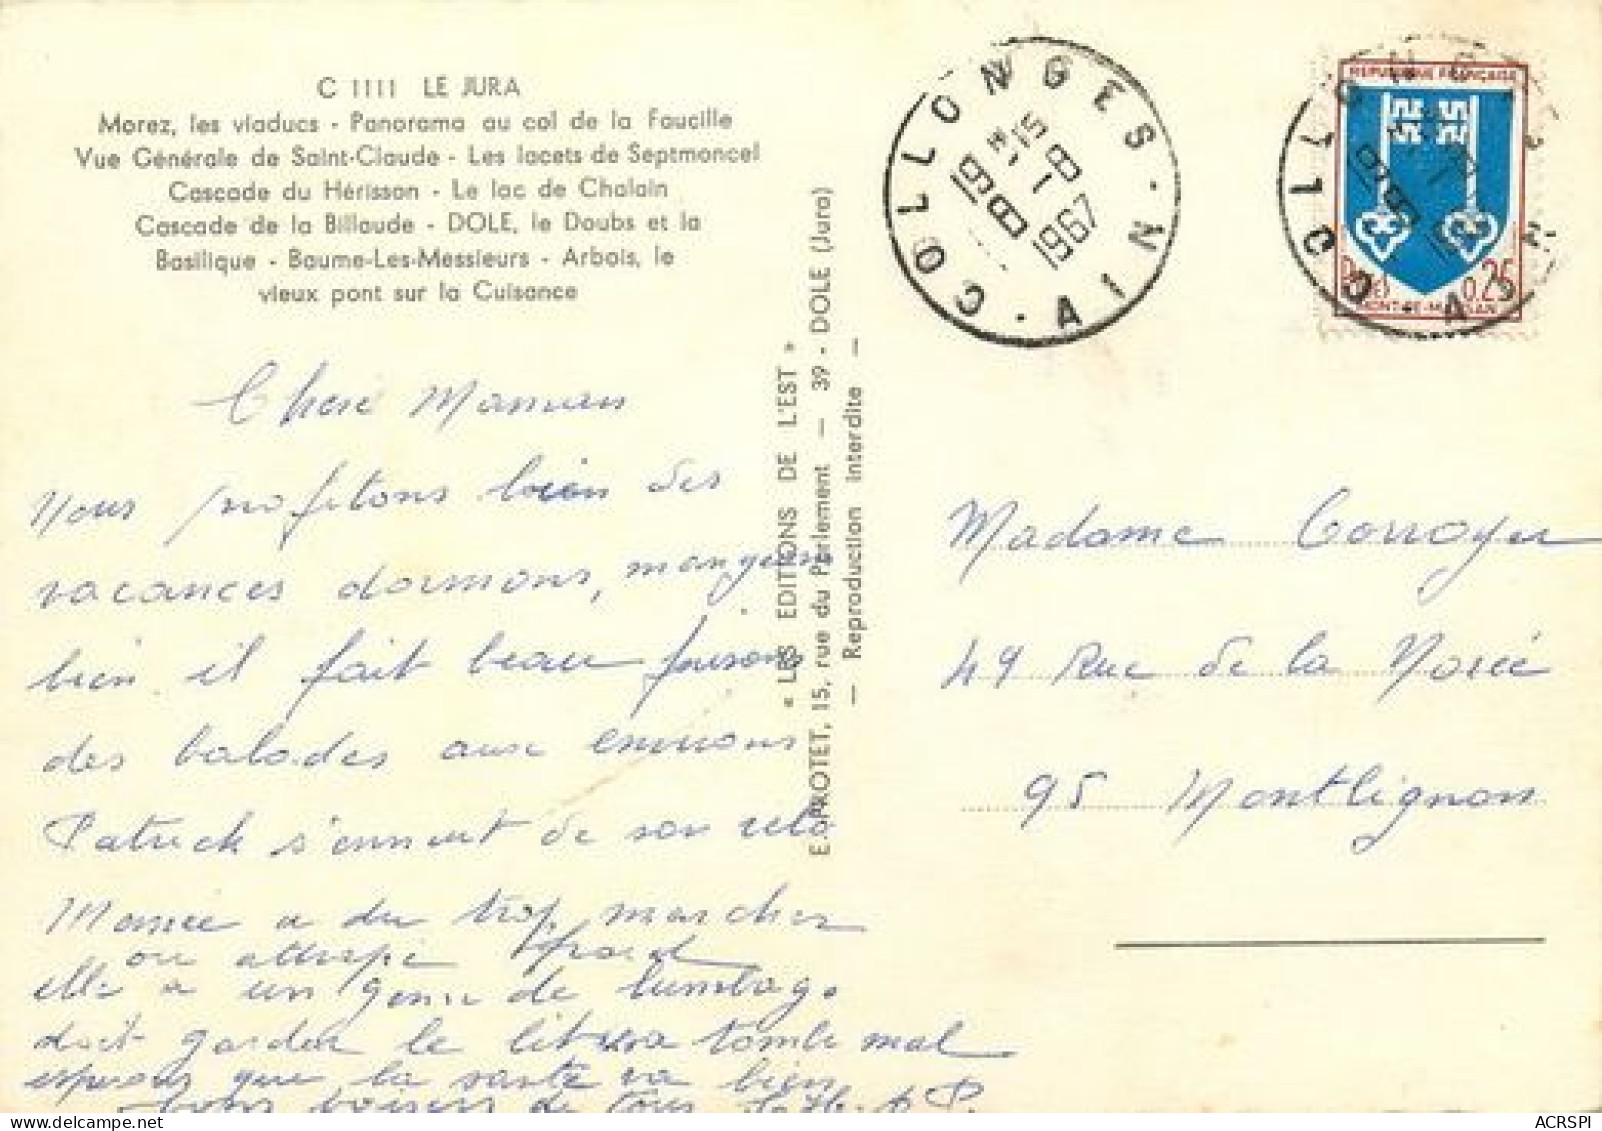 C 1111 LE JURA
Morez, les viaducs - Panorama au col de la Faucille
Vue Générale de Saint-Claude - Les lacets de Septmoncel
Cascade du Hérisson - Le lac de Chalain
Cascade de la Billaude - DOLE, le Doubs et la
Basilique - Baume-Les-Messieurs - Arbois, le
vieux pont sur la Cuisance
Chère Maman
Nous profitons bien des
vacances dormons, mangeons
bien il fait beau faisons
des balades aux environs
Patrick s'ennuit de son vélo
a du trop marcher
ou attrapé froid
elle a un genre de lumbago
doit garder le lit
tombe mal
espérons que la santé va bien
bons baisers de tous
« LES EDITIONS DE L'EST »
E. PROTET, 15, rue du Parlement — 39 - DOLE (Jura)
— Reproduction interdite —
COLLONGES · AIN ·
19H15
8-8
1967
REPUBLIQUE FRANÇAISE
0.25
MONT-DE-MARSAN
COLLONGES · AIN ·
Madame Corroyer
49 Rue de la
95 Montlignon
ACRSPI